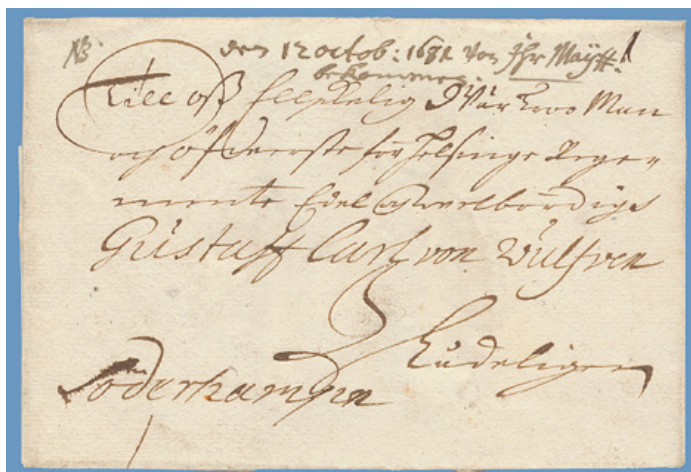 NB. den 12 octob: 1681 Von Ihr Maytt:
bekommen.
Till oß Elskelig Wår Troo Man
och öfwerste för Helsinge Rege-
mente Edel och welbördig
Güstaff Carl von Wulfven
Nådeligen
Söderhampn